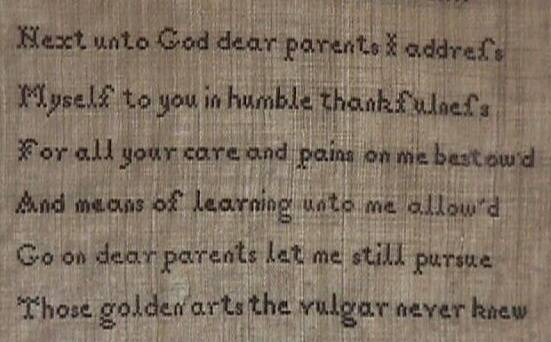 Next unto God dear parents I addreſs
Myself to you in humble thankfulneſs
For all your care and pains on me bestow'd
And means of learning unto me allow'd
Go on dear parents let me still pursue
Those golden arts the vulgar never knew